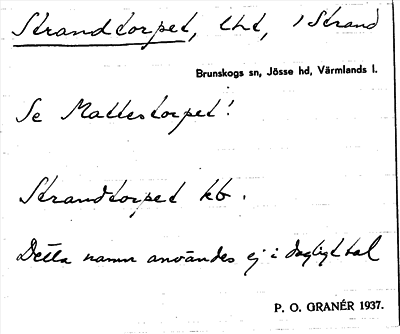 Strandtorpet, lht, i Strand
Brunskogs sn, Jösse hd, Värmlands l.
Se Mattestorpet!
Strandtorpet kb.
Detta namn användes ej i dagligt tal
P. O. GRANÉR 1937.